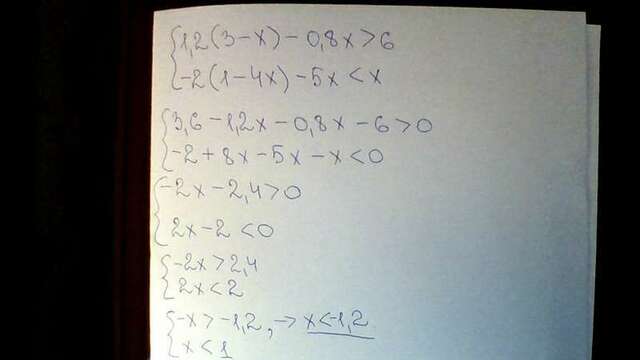 1,2(3-x)-0,8x>6
-2(1-4x)-5x<x
3,6-1,2x-0,8x-6>0
-2+8x-5x-x<0
-2x-2,4>0
2x-2<0
-2x>2,4
2x<2
-x>-1,2, → x<-1,2
x<1